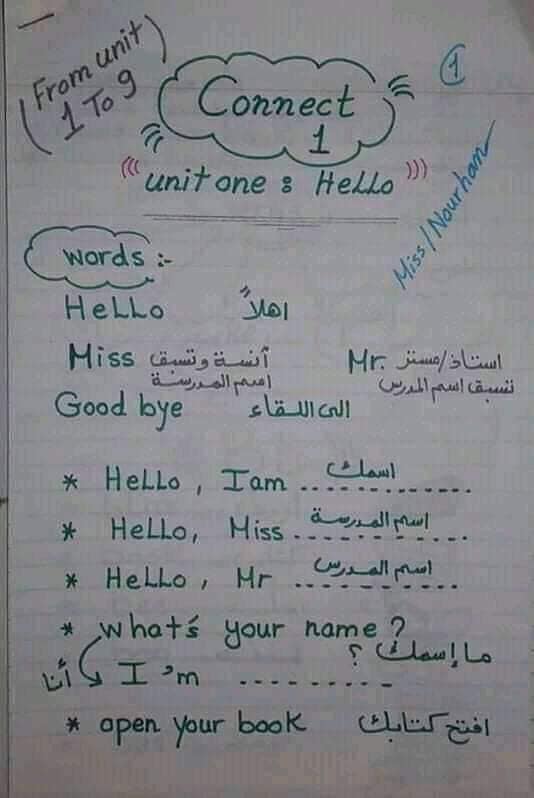 (From unit
1 To 9)
1
Connect
1
unit one : Hello
Miss/Nourhan
Words :-
Hello اهلاً
Miss آنسة وتسبق اسم المدرسة
Mr. استاذ/مستر تسبق اسم المدرس
Good bye الى اللقاء
* Hello, I am اسمك ............
* Hello, Miss اسم المدرسة ............
* Hello, Mr اسم المدرس ............
* What's your name ? ما إسمك ؟
أنا I'm .........
* open your book افتح كتابك